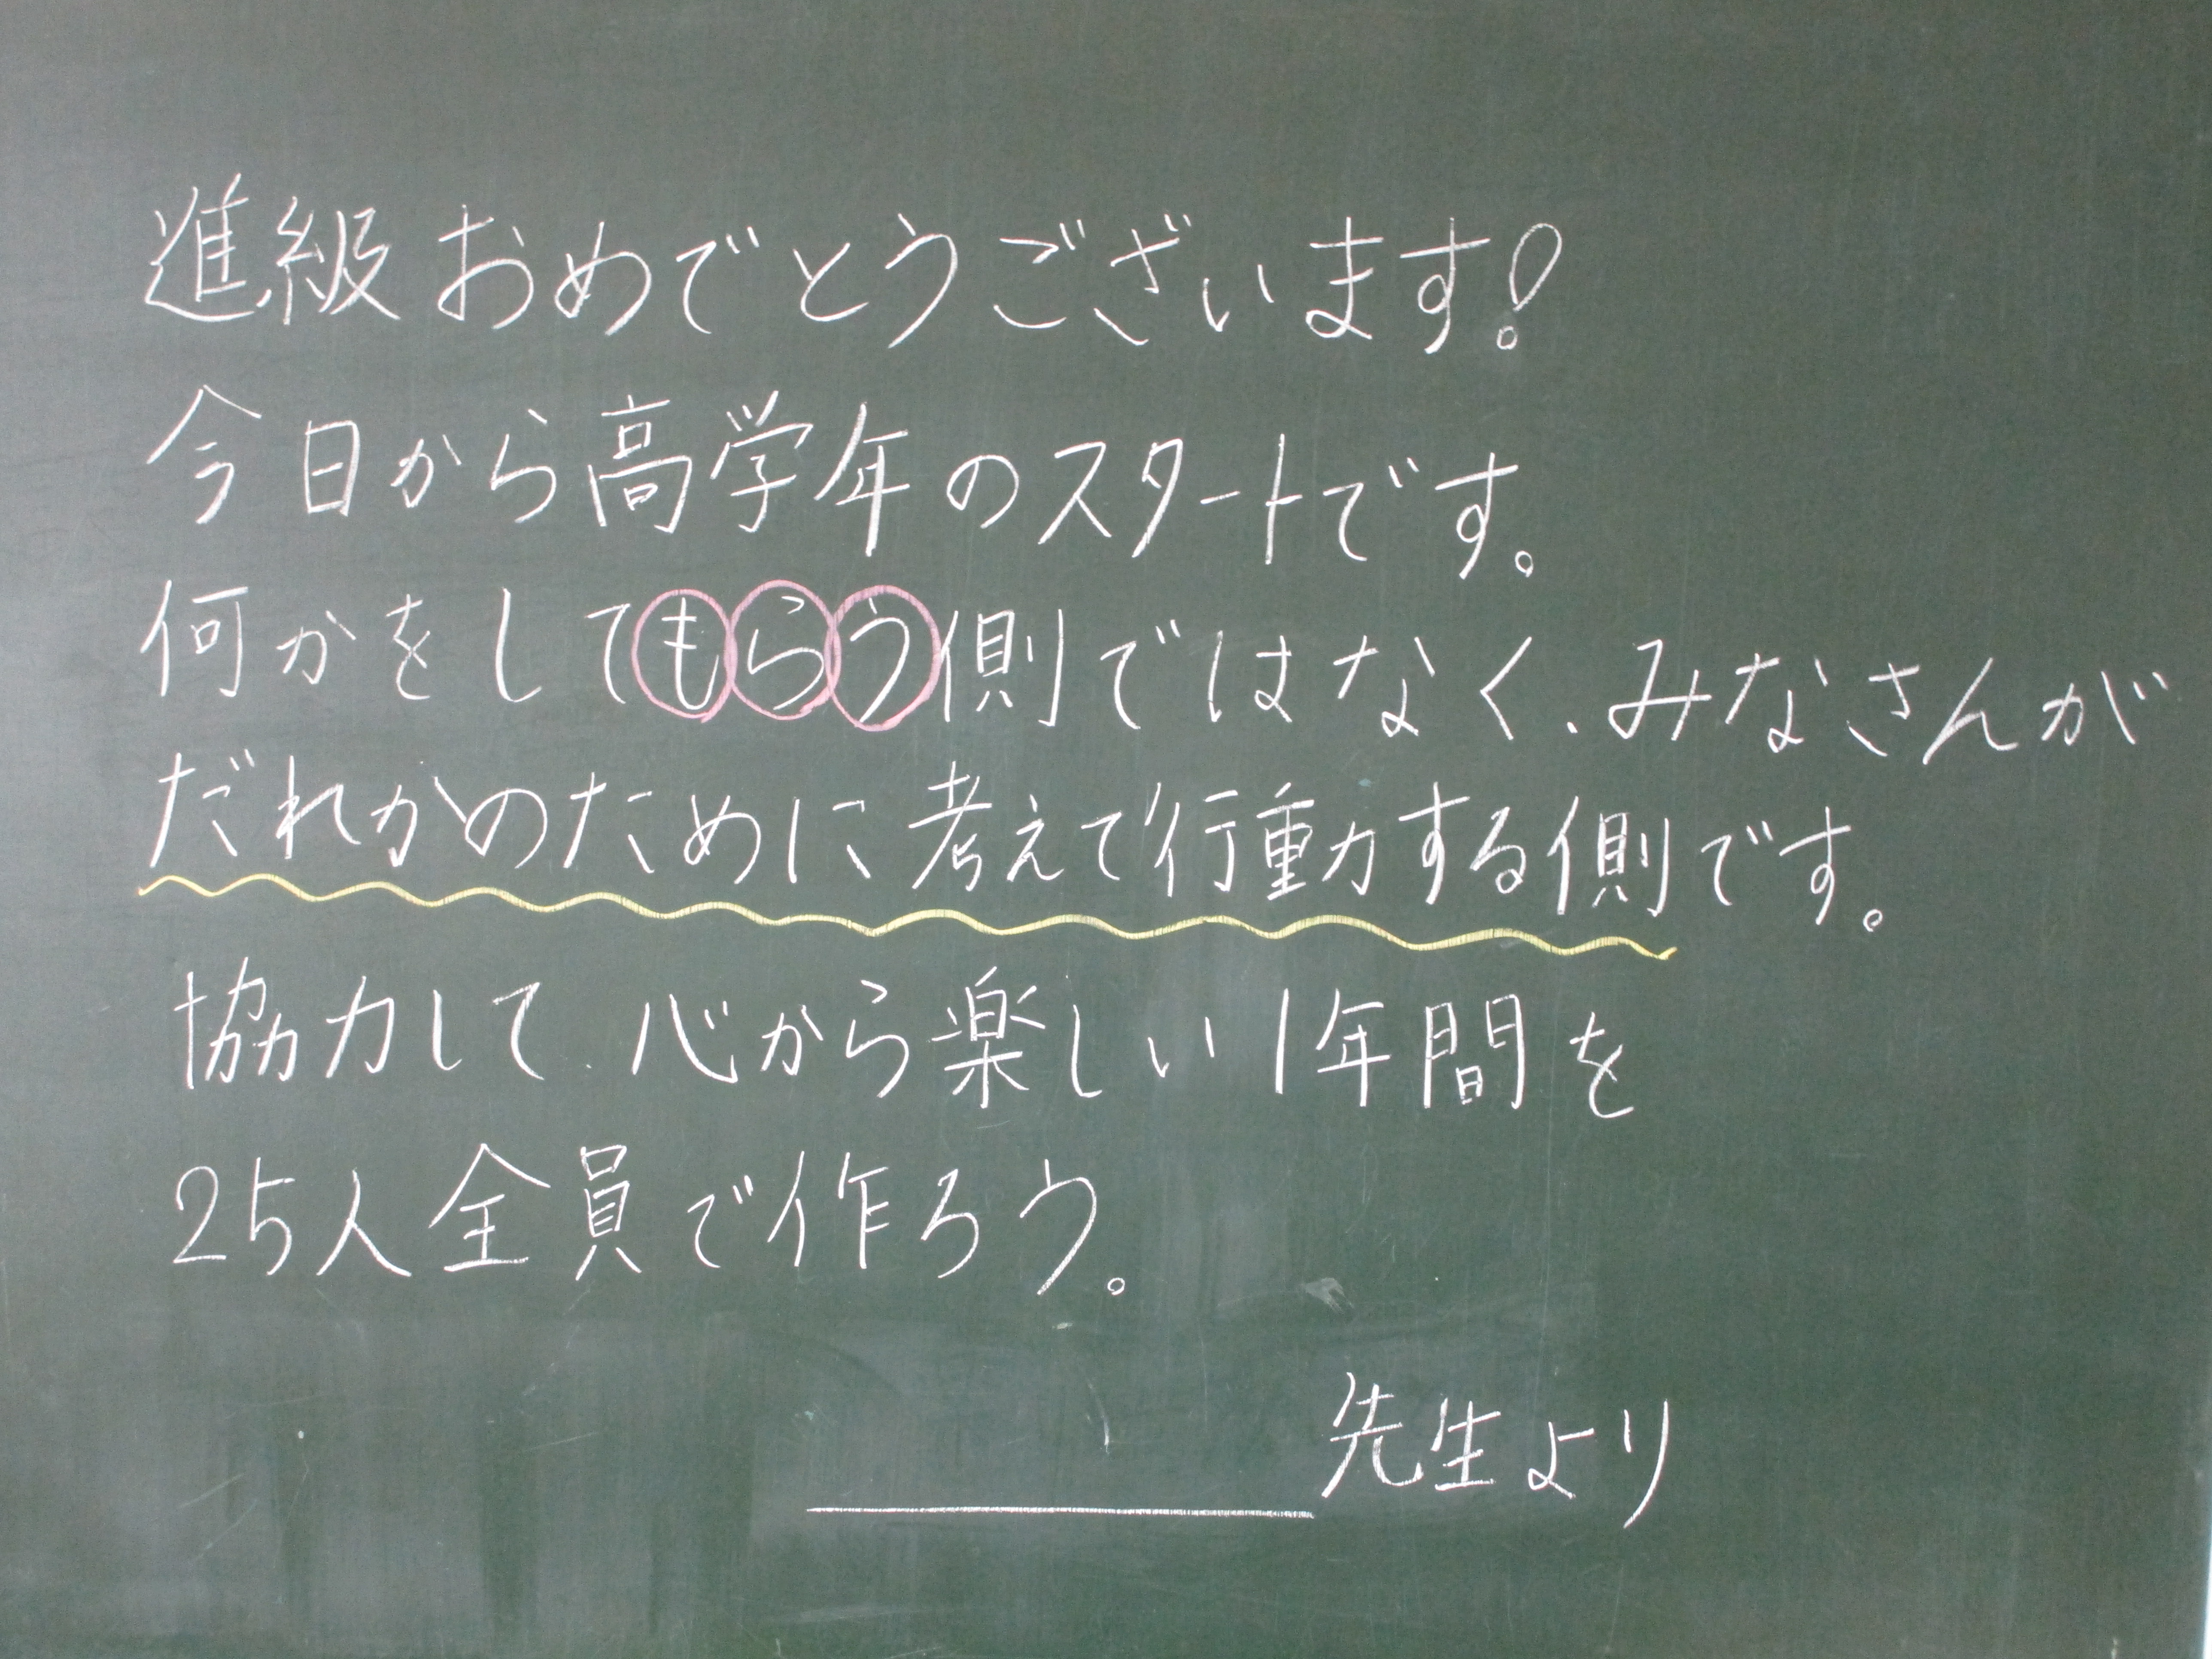 進級おめでとうございます!
今日から高学年のスタートです。
何かをしてもらう側ではなく、みなさんが
だれかのために考えて行動する側です。
協力して、心から楽しい1年間を
25人全員で作ろう。
先生より